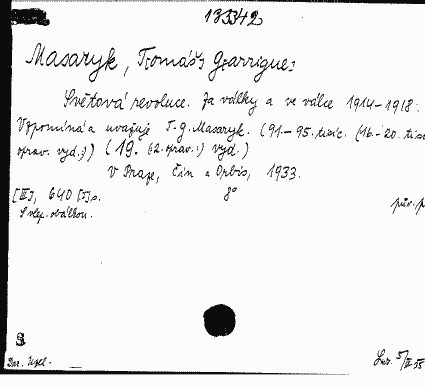 133342
Masaryk, T[omáš] G[arrigue]
Světová revoluce. Za války a ve válce 1914-1918.
Vzpomíná a uvažuje T. G. Masaryk. (91.-95. tisíc. (16.-20. tisíc
oprav. vyd.)) (19. (2. oprav.) vyd.)
V Praze, Čin a Orbis, 1933.
[III], 640 [I] s. 8°
S vlep. obálkou. pův. p
Dar. Uhel. Inv. 5/II 55